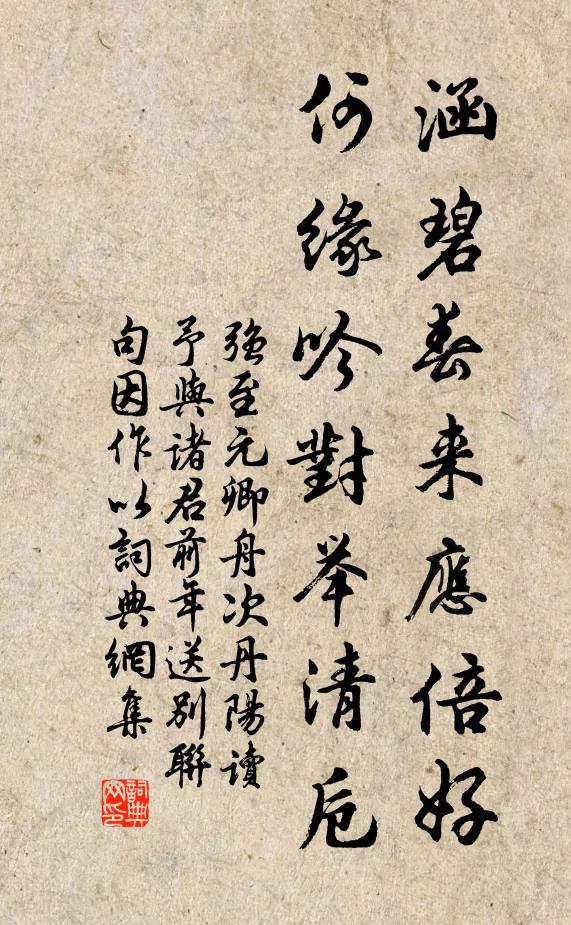 涵碧春来應倍好
何緣吟對举清卮
强至元卿舟次丹陽讀
予與諸君前年送别聯
句因作以詞典網集
詞典
网印